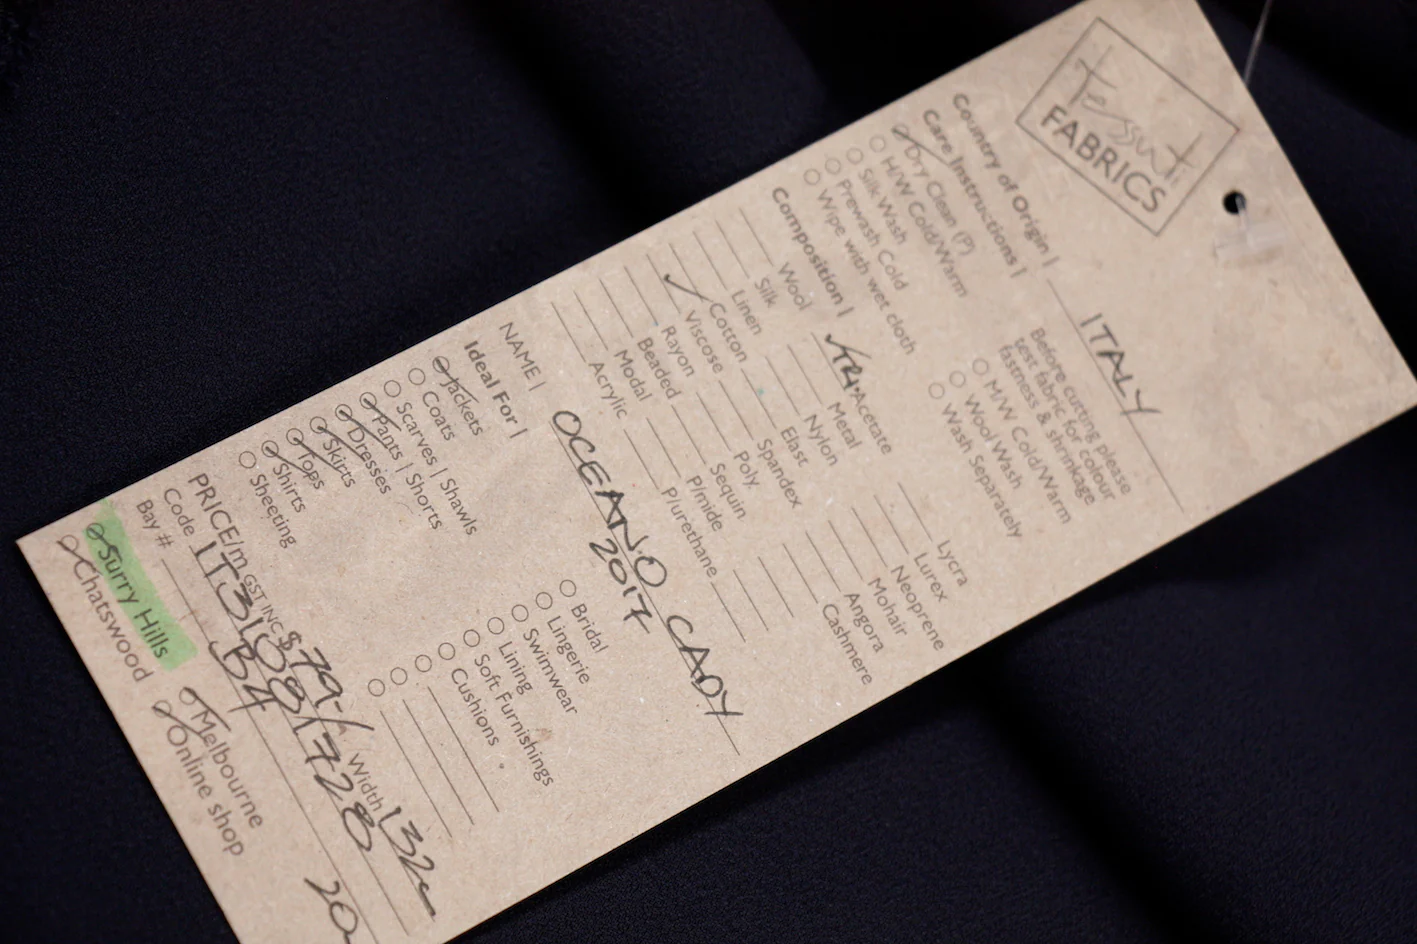 Tessuti
FABRICS
Country of Origin | ITALY
Care Instructions |
Dry Clean (P)
H/W Cold/Warm
Silk Wash
Prewash Cold
Wipe with wet cloth
Before cutting please
test fabric for colour
fastness & shrinkage
H/W Cold/Warm
Wool Wash
Wash Separately
Composition |
Wool
Silk
Linen
Cotton
Viscose
Rayon
Beaded
Modal
Acrylic
TRI-Acetate
Metal
Nylon
Elast
Spandex
Poly
Sequin
P/mide
P/urethane
Lycra
Lurex
Neoprene
Mohair
Angora
Cashmere
NAME | OCEANO CADY
2017
Ideal For |
Jackets
Coats
Scarves | Shawls
Pants | Shorts
Dresses
Skirts
Tops
Shirts
Sheeting
Bridal
Lingerie
Swimwear
Lining
Soft Furnishings
Cushions
PRICE/m GST INC $79-/ Width 132c
Code IT31088/1728
Bay # B4
Surry Hills
Chatswood
Melbourne
Online shop